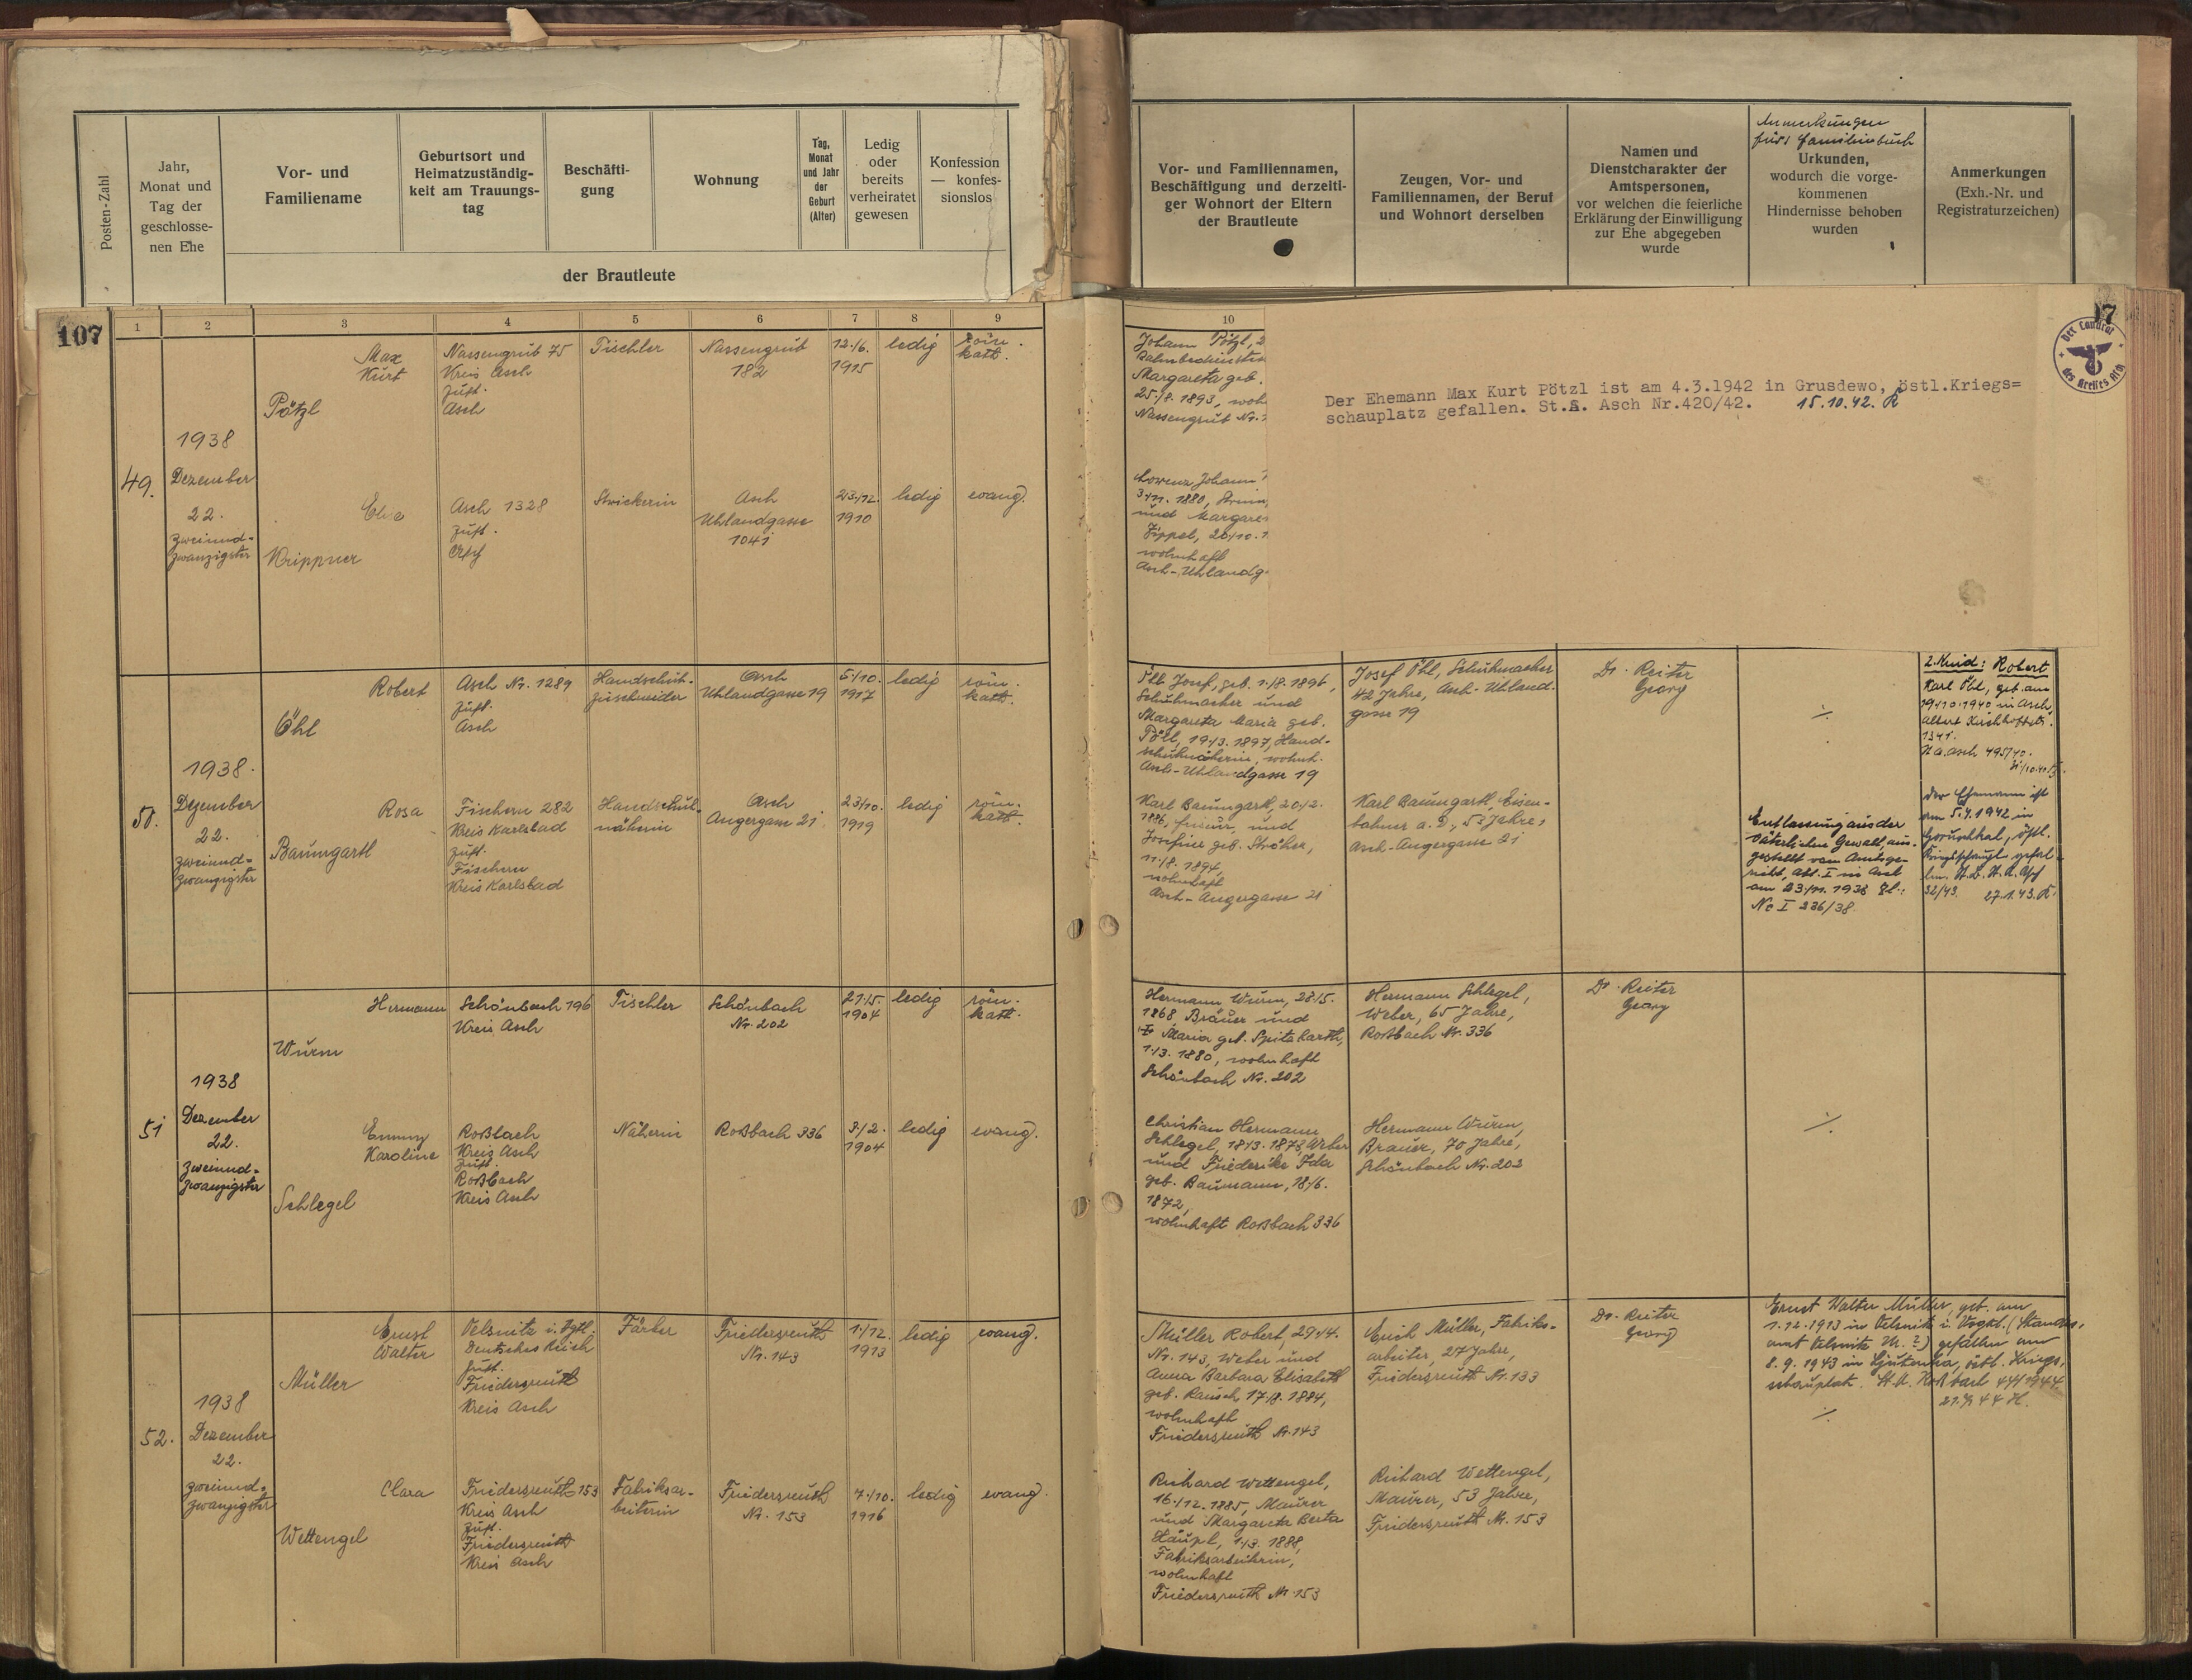 Posten-Zahl
Jahr,
Monat und
Tag der
geschlosse-
nen Ehe
Vor- und
Familiename
Geburtsort und
Heimatzuständig-
keit am Trauungs-
tag
Beschäfti-
gung
Wohnung
Tag,
Monat
und Jahr
der
Geburt
(Alter)
Ledig
oder
bereits
verheiratet
gewesen
Konfession
— konfes-
sionslos
der Brautleute
Vor- und Familiennamen,
Beschäftigung und derzeiti-
ger Wohnort der Eltern
der Brautleute
Zeugen, Vor- und
Familiennamen, der Beruf
und Wohnort derselben
Namen und
Dienstcharakter der
Amtspersonen,
vor welchen die feierliche
Erklärung der Einwilligung
zur Ehe abgegeben
wurde
Anmerkungen
fürs Familienbuch
Urkunden,
wodurch die vorge-
kommenen
Hindernisse behoben
wurden
Anmerkungen
(Exh.-Nr. und
Registraturzeichen)
107
1 2 3 4 5 6 7 8 9
10
17
Der Landrat
des Kreises Asch
49.
1938
Dezember
22.
zweiund-
zwanzigster
Max
Kurt
Pötzl
Nassengrub 75
Kreis Asch
zust.
Asch
Tischler
Nassengrub
182
12./6.
1915
ledig
röm.
kath.
Johann Pötzl, 2
Margareta geb.
25./8. 1893, woh
Nassengrub Nr.
Der Ehemann Max Kurt Pötzl ist am 4.3.1942 in Grusdewo, östl.Kriegs=
schauplatz gefallen. St.A. Asch Nr.420/42. 15.10.42. R
Elsa
Krippner
Asch 1328
zust.
Asch
Strickerin
Asch
Uhlandgasse
1041
23./12.
1910
ledig
evang.
Lorenz Johann
3./11. 1880,
und Margare
Zippel, 20./10. 1
wohnhaft
Asch-Uhlandg
50.
1938.
Dezember
22.
zweiund-
zwanzigster
Robert
Öhl
Asch Nr. 1289
zust.
Asch
Handschuh-
zuschneider
Asch
Uhlandgasse 19
5./10.
1917
ledig
röm.
kath.
Öhl Josef, geb. 1./8. 1896,
Schuhmacher und
Margareta Maria geb.
Pöll, 19./3. 1897, Hand-
schuhnäherin, wohnh.
Asch-Uhlandgasse 19
Josef Öhl, Schuhmacher
42 Jahre, Asch-Uhland-
gasse 19
Dr. Reiter
Georg
2. Kind: Robert
Karl Öhl, geb. am
19.10.1940 in Asch,
Albert Kirchhoffstr.
1341.
St.A. Asch 495/40.
Rosa
Baumgartl
Fischern 282
Kreis Karlsbad
zust.
Fischern
Kreis Karlsbad
Handschuh-
näherin
Asch
Angergasse 21
23./10.
1919
ledig
röm.
kath.
Karl Baumgartl, 20./2.
1886, Friseur, und
Josefine geb. Ströher,
11./8. 1894,
wohnhaft
Asch-Angergasse 21
Karl Baumgartl, Eisen-
bahner a. D., 53 Jahre,
Asch-Angergasse 21
Entlassung aus der
väterlichen Gewalt, aus-
gestellt vom Amtsge-
richt, Abt. I in Asch
am 23./11. 1938 Zl.:
Nc I 236/38
Der Ehemann ist
am 5.4.1942 in
östl.
Kriegsschaupl. gefal-
len. St.A. Asch
32/43. 27.1.43. R.
51
1938
Dezember
22.
zweiund-
zwanzigster
Hermann
Wurm
Schönbach 196
Kreis Asch
Tischler
Schönbach
Nr. 202
27./5.
1904
ledig
röm.
kath.
Hermann Wurm, 28./5.
1868 Brauer und
Maria geb. Spitzbarth,
1./3. 1880, wohnhaft
Schönbach Nr. 202
Hermann Schlegel,
Weber, 65 Jahre,
Roßbach Nr. 336
Dr. Reiter
Georg
Emmy
Karoline
Schlegel
Roßbach
Kreis Asch
zust.
Roßbach
Kreis Asch
Näherin
Roßbach 336
3./2.
1904
ledig
evang.
Christian Hermann
Schlegel, 18./3. 1873, Weber
und Friederike Ida
geb. Baumann, 18./6.
1872,
wohnhaft Roßbach 336
Hermann Wurm,
Brauer, 70 Jahre,
Schönbach Nr. 202
52.
1938
Dezember
22.
zweiund-
zwanzigster
Ernst
Walter
Müller
Oelsnitz i. Vgtl.
Deutsches Reich
zust.
Friedersreuth
Kreis Asch
Färber
Friedersreuth
Nr. 143
1./12.
1913
ledig
evang.
Müller Robert, 29./4.
Nr. 143, Weber und
Anna Barbara Elisabeth
geb. Rausch, 17./8. 1884,
wohnhaft
Friedersreuth Nr. 143
Erich Müller, Fabriks-
arbeiter, 27 Jahre,
Friedersreuth Nr. 133
Dr. Reiter
Georg
Ernst Walter Müller, geb. am
1.12.1913 in Oelsnitz i. Vogtl. (Standes-
amt Oelsnitz Nr. ?) gefallen am
8. 9. 1943 in Ljutenka, östl. Kriegs-
schauplatz. St.A. Roßbach 44/1944
Clara
Wettengel
Friedersreuth 153
Kreis Asch
zust.
Friedersreuth
Kreis Asch
Fabriksar-
beiterin
Friedersreuth
Nr. 153
7./10.
1916
ledig
evang.
Richard Wettengel,
16./12. 1885, Maurer
und Margareta Berta
Häupl, 1./3. 1888,
Fabriksarbeiterin,
wohnhaft
Friedersreuth Nr. 153
Richard Wettengel,
Maurer, 53 Jahre,
Friedersreuth Nr. 153